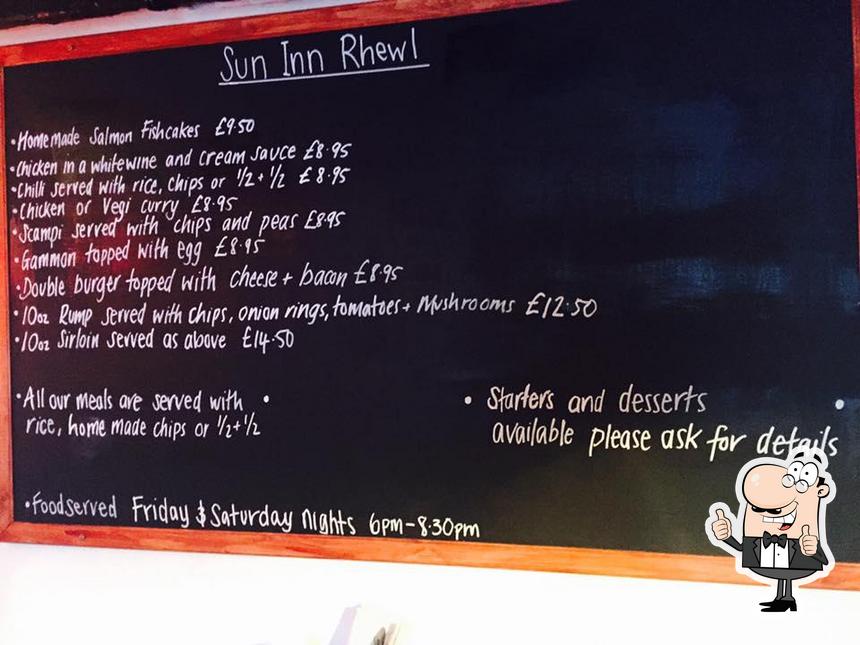 Sun Inn Rhewl
• Home made Salmon Fishcakes £9.50
• Chicken in a whitewine and cream sauce £8.95
• Chilli served with rice, chips or 1/2 + 1/2 £8.95
• Chicken or Vegi curry £8.95
• Scampi served with chips and peas £8.95
• Gammon topped with egg £8.95
• Double burger topped with cheese + bacon £8.95
• 10oz Rump served with chips, onion rings, tomatoes + Mushrooms £12.50
• 10oz Sirloin served as above £14.50
• All our meals are served with •
rice, home made chips or 1/2 + 1/2
• Starters and desserts •
available please ask for details
• Food served Friday & Saturday nights 6pm - 8.30pm